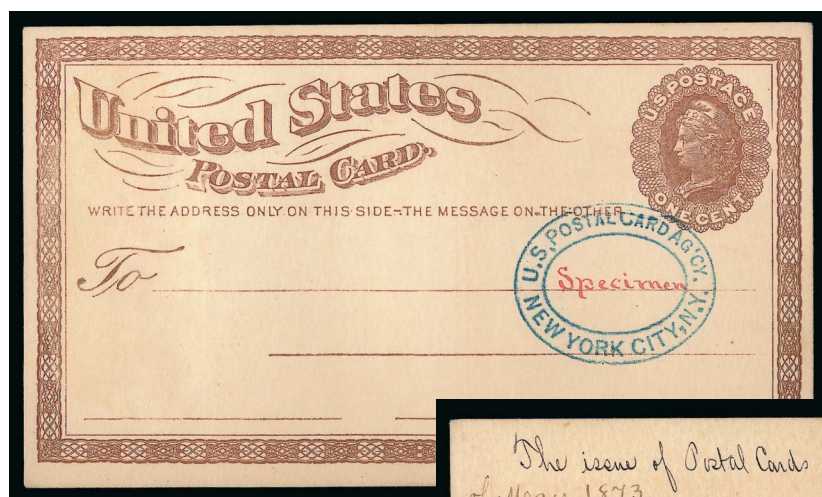 United States
POSTAL CARD.
U.S. POSTAGE
ONE CENT
WRITE THE ADDRESS ONLY ON THIS SIDE–THE MESSAGE ON THE OTHER
To
U.S. POSTAL CARD AG'CY.
Specimen
NEW YORK CITY, N.Y.
The issue of Postal Cards
of May 1873